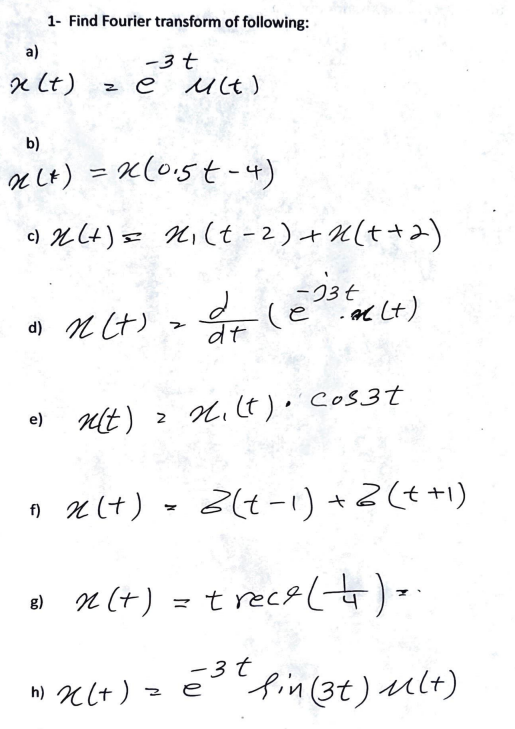 1- Find Fourier transform of following:
a)
x(t) = e^{-3t} u(t)
b)
x(t) = x(0.5t-4)
c) x(t) = x₁(t-2) + x(t+2)
d) x(t) = d/dt (e^{-j3t} . x(t)
e) x(t) = x₁(t) . cos3t
f) x(t) = δ(t-1) + δ(t+1)
g) x(t) = t rect(t/4) = .
h) x(t) = e^{-3t} sin(3t) u(t)